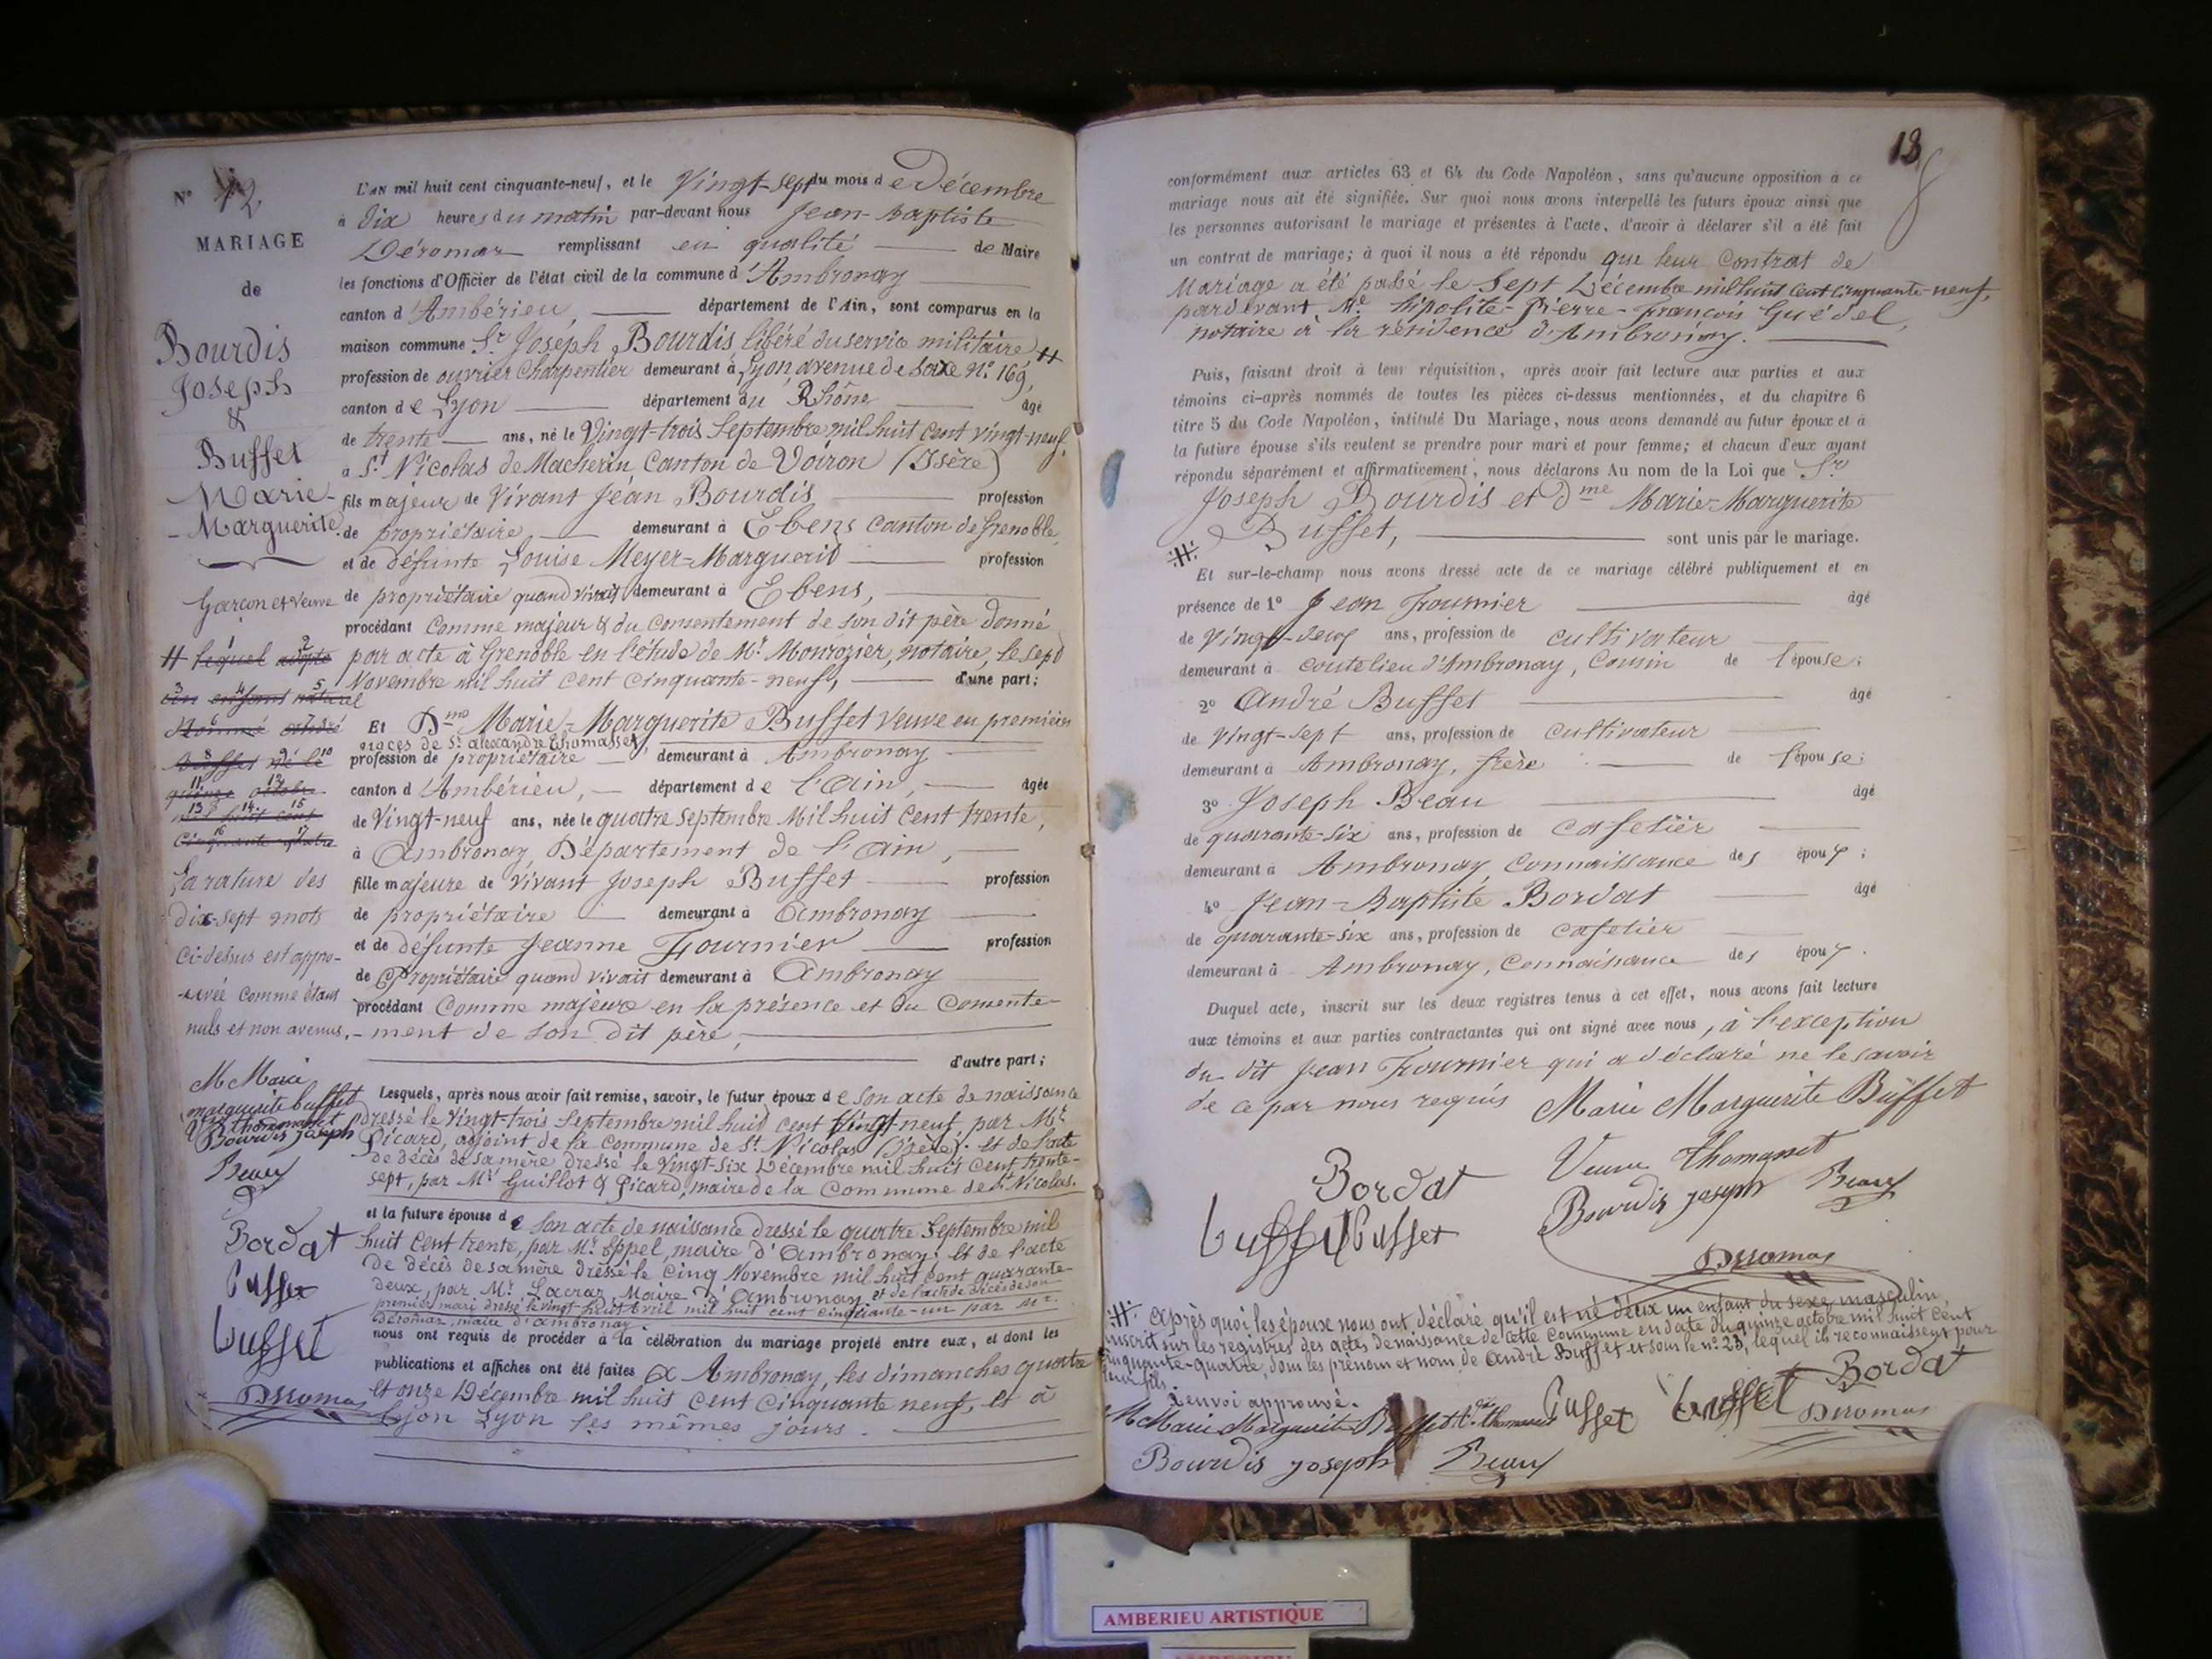 N° 12
MARIAGE
de
Bourdis
Joseph
&
Buffet
Marie-
-Marguerite.
Garçon et Veuve
H lequel adopte
un enfant naturel
nommé andré
Buffet né le
quinze octobre
mil huit cent
cinquante quatre
La rature des
dix-sept mots
ci-dessus est appro-
-uvée comme étant
nuls et non avenus.
M Marie
marguerite buffet
Ve thomasset
Bourdis joseph
Beau
Bordat
Buffet
Buffet
Déromas
L'AN mil huit cent cinquante-neuf, et le Vingt-sept du mois de Décembre
à dix heures du matin par-devant nous Jean-Baptiste
Déromas remplissant en qualité de Maire
les fonctions d'Officier de l'état civil de la commune d'Ambronay
canton d'Ambérieu, département de l'Ain, sont comparus en la
maison commune Sr Joseph Bourdis libéré du service militaire, H
profession de ouvrier Charpentier demeurant à Lyon avenue de Saxe N° 169,
canton de Lyon département du Rhône âgé
de trente ans, né le Vingt-trois Septembre mil huit cent vingt-neuf,
à St Nicolas de Macherin Canton de Voiron (Isère)
fils majeur de Vivant Jéan Bourdis profession
de propriétaire demeurant à Ebens canton de Grenoble,
et de défunte Louise Meyer-Marguerid profession
de propriétaire quand vivait demeurant à Ebens,
procédant Comme majeur & du consentement de son dit père donné
par acte à Grenoble en l'étude de Mr Monrozier, notaire, le sept
Novembre mil huit cent cinquante-neuf, d'une part;
Et Dme Marie-Marguerite Buffet Veuve en premières
noces de Sr alexandre Thomasset,
profession de propriétaire demeurant à Ambronay
canton d'Ambérieu, département de l'Ain, âgée
de Vingt-neuf ans, née le quatre Septembre Mil huit Cent trente,
à Ambronay Département de l'Ain,
fille majeure de Vivant Joseph Buffet profession
de propriétaire demeurant à Ambronay
et de défunte Jeanne Fournier profession
de Propriétaire quand vivait demeurant à Ambronay
procédant Comme majeure en la présence et du Consente-
-ment de son dit père,
d'autre part;
Lesquels, après nous avoir fait remise, savoir, le futur époux de son acte de naissance
dressé le Vingt-trois Septembre mil huit cent Vingt-neuf, par Mr
Picard, adjoint de la Commune de St Nicolas (Isère). et de l'acte
de décès de sa mère dressé le Vingt-six Décembre mil huit cent trente-
sept, par Mr Guillot & Picard, maire de la Commune de St Nicolas.
et la future épouse de son acte de naissance dressé le quatre Septembre mil
huit cent trente, par Mr Eppel, maire d'Ambronay, et de l'acte
de décès de sa mère dressé le Cinq Novembre mil huit cent quarante-
deux, par Mr Lacraz, Maire d'Ambronay et de l'acte de décès de son
premier mari dressé le vingt-huit avril mil huit cent cinquante-un par Mr
Déromas, maire d'ambronay.
nous ont requis de procéder à la célébration du mariage projeté entre eux, et dont les
publications et affiches ont été faites à Ambronay, les dimanches quatre
et onze Décembre mil huit cent cinquante neuf, et à
Lyon Lyon les mêmes jours.
13
conformément aux articles 63 et 64 du Code Napoléon, sans qu'aucune opposition à ce
mariage nous ait été signifiée. Sur quoi nous avons interpellé les futurs époux ainsi que
les personnes autorisant le mariage et présentes à l'acte, d'avoir à déclarer s'il a été fait
un contrat de mariage; à quoi il nous a été répondu que leur Contrat de
Mariage a été passé le Sept Décembre mil huit cent cinquante-neuf,
pardevant Me hipolite-Pierre-François Guédel,
notaire à la résidence d'Ambronay.
Puis, faisant droit à leur réquisition, après avoir fait lecture aux parties et aux
témoins ci-après nommés de toutes les pièces ci-dessus mentionnées, et du chapitre 6
titre 5 du Code Napoléon, intitulé Du Mariage, nous avons demandé au futur époux et à
la future épouse s'ils veulent se prendre pour mari et pour femme; et chacun d'eux ayant
répondu séparément et affirmativement, nous déclarons Au nom de la Loi que Sr
Joseph Bourdis et Dme Marie-Marguerite
Buffet, sont unis par le mariage.
H Et sur-le-champ nous avons dressé acte de ce mariage célébré publiquement et en
présence de 1° Jean Fournier âgé
de Vingt-neuf ans, profession de cultivateur
demeurant à coutelieu d'Ambronay, Cousin de l'épouse;
2° André Buffet âgé
de Vingt-sept ans, profession de Cultivateur
demeurant à Ambronay, frère de l'épouse;
3° Joseph Beau âgé
de quarante-six ans, profession de Cafetier
demeurant à Ambronay, Connaissance des époux;
4° Jean-Baptiste Bordat âgé
de quarante-six ans, profession de Cafetier
demeurant à Ambronay, Connaissance des époux.
Duquel acte, inscrit sur les deux registres tenus à cet effet, nous avons fait lecture
aux témoins et aux parties contractantes qui ont signé avec nous, à l'exception
du dit Jean Fournier qui a déclaré ne le savoir
de ce par nous requis Marie Marguerite Buffet
Veuve Thomasset
Bordat
Bourdis joseph Beau
Buffet Buffet
Déromas
H après quoi les époux nous ont déclaré qu'il est né d'eux un enfant du sexe masculin,
inscrit sur les registres des actes de naissance de cette Commune en date du quinze octobre mil huit cent
cinquante-quatre, sous les prénom et nom de André Buffet et sous le n° 23, lequel ils reconnaissent pour
leur fils.
Renvoi approuvé.
M Marie Marguerite Buffet Ve thomasset Buffet Buffet Bordat
Déromas
Bourdis joseph Beau
AMBERIEU ARTISTIQUE